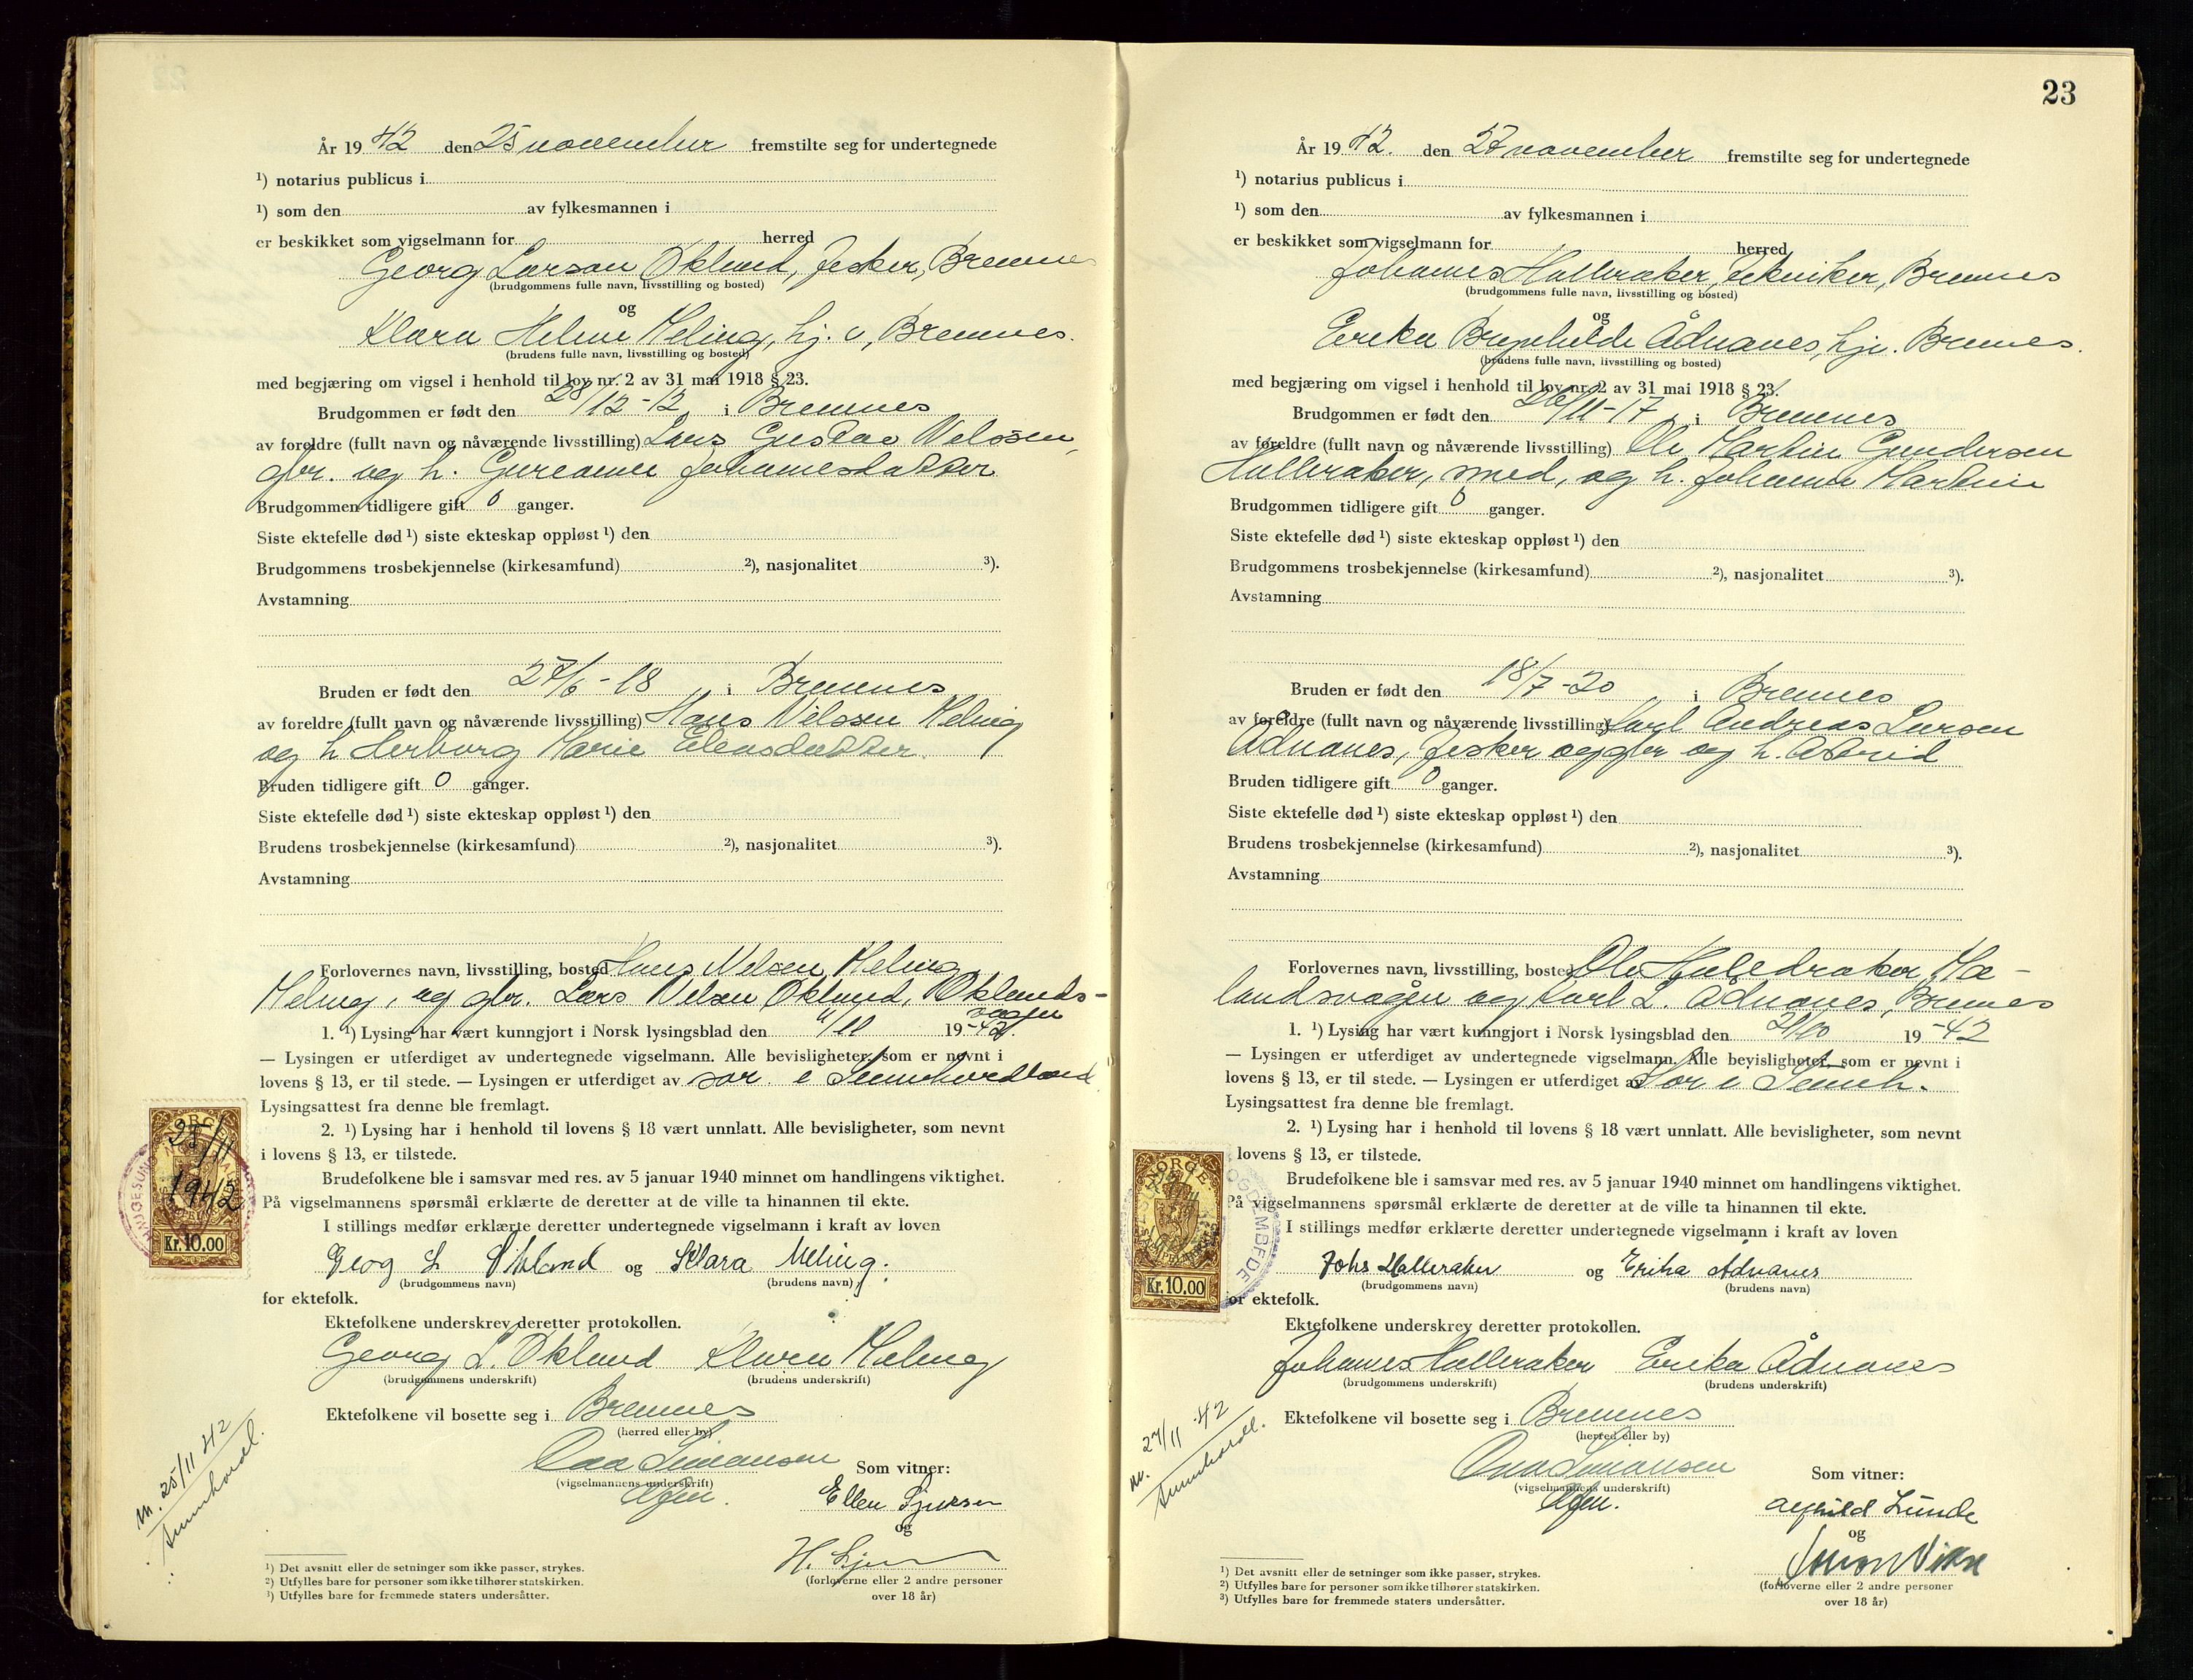 År 19 42 den 25 november fremstilte seg for undertegnede
¹) notarius publicus i
¹) som den av fylkesmannen i
er beskikket som vigselmann for herred
Georg Larsen Økland, fisker, Bremnes
(brudgommens fulle navn, livsstilling og bosted)
og
Klara Meling, hj. v, Bremnes.
(brudens fulle navn, livsstilling og bosted)
med begjæring om vigsel i henhold til lov nr. 2 av 31 mai 1918 § 23.
Brudgommen er født den 28/12-12 i Bremnes
av foreldre (fullt navn og nåværende livsstilling) Lars Gustav Nelssen,
gbr. og h. Johannesdatter
Brudgommen tidligere gift 0 ganger.
Siste ektefelle død ¹) siste ekteskap oppløst ¹) den
Brudgommens trosbekjennelse (kirkesamfund) ²), nasjonalitet ³).
Avstamning
Bruden er født den 27/6-18 i Bremnes
av foreldre (fullt navn og nåværende livsstilling) Hans Nelssen Meling
og h Herborg Marie Eliasdatter
Bruden tidligere gift 0 ganger.
Siste ektefelle død ¹) siste ekteskap oppløst ¹) den
Brudens trosbekjennelse (kirkesamfund) ²), nasjonalitet ³).
Avstamning
Forlovernes navn, livsstilling, bosted Hans Nelsen Meling
Meling, og gbr. Lars Nelsen Økland, Øklands-
vågen
1. ¹) Lysing har vært kunngjort i Norsk lysingsblad den 4/11 19-42.
— Lysingen er utferdiget av undertegnede vigselmann. Alle bevisligheter, som er nevnt i
lovens § 13, er til stede. — Lysingen er utferdiget av sor. i Sunnhordland
Lysingsattest fra denne ble fremlagt.
2. ¹) Lysing har i henhold til lovens § 18 vært unnlatt. Alle bevisligheter, som nevnt
i lovens § 13, er tilstede.
Brudefolkene ble i samsvar med res. av 5 januar 1940 minnet om handlingens viktighet.
På vigselmannens spørsmål erklærte de deretter at de ville ta hinannen til ekte.
I stillings medfør erklærte deretter undertegnede vigselmann i kraft av loven
Georg L Økland og Klara Meling.
(brudgommens navn) (brudens navn)
for ektefolk.
Ektefolkene underskrev deretter protokollen.
Georg L. Økland Klara Meling
(brudgommens underskrift) (brudens underskrift)
Ektefolkene vil bosette seg i Bremnes
(herred eller by)
Simonsen
(vigselmannens underskrift)
Som vitner:
Ellen
og
H.
(forloverne eller 2 andre personer
over 18 år)
NORGE
25/11
1942
Kr. 10.00
m. 25/11 42
Sunnhordl.
¹) Det avsnitt eller de setninger som ikke passer, strykes.
²) Utfylles bare for personer som ikke tilhører statskirken.
³) Utfylles bare for fremmede staters undersåtter.
23
År 19 42. den 27 november fremstilte seg for undertegnede
¹) notarius publicus i
¹) som den av fylkesmannen i
er beskikket som vigselmann for herred
Johannes Halleraker, tekniker, Bremnes
(brudgommens fulle navn, livsstilling og bosted)
og
Erika Brynhilde Ådnanes, hjv. Bremnes.
(brudens fulle navn, livsstilling og bosted)
med begjæring om vigsel i henhold til lov nr. 2 av 31 mai 1918 § 23.
Brudgommen er født den 26/11-17, i Bremnes
av foreldre (fullt navn og nåværende livsstilling) Ole Martin Gundersen
Halleraker, smed, og h. Johanna Martine
Brudgommen tidligere gift 0 ganger.
Siste ektefelle død ¹) siste ekteskap oppløst ¹) den
Brudgommens trosbekjennelse (kirkesamfund) ²), nasjonalitet ³).
Avstamning
Bruden er født den 18/7-20, i Bremnes
av foreldre (fullt navn og nåværende livsstilling) Karl Andreas Larsen
Ådnanes, fisker og gbr og h. Astrid
Bruden tidligere gift 0 ganger.
Siste ektefelle død ¹) siste ekteskap oppløst ¹) den
Brudens trosbekjennelse (kirkesamfund) ²), nasjonalitet ³).
Avstamning
Forlovernes navn, livsstilling, bosted Ole Halleraker, Mæ-
landsvågen og Karl L. Ådnanes, Bremnes
1. ¹) Lysing har vært kunngjort i Norsk lysingsblad den 21/10 19-42
— Lysingen er utferdiget av undertegnede vigselmann. Alle bevisligheter, som er nevnt i
lovens § 13, er til stede. — Lysingen er utferdiget av Sor i Sunnh.
Lysingsattest fra denne ble fremlagt.
2. ¹) Lysing har i henhold til lovens § 18 vært unnlatt. Alle bevisligheter, som nevnt
lovens § 13, er tilstede.
Brudefolkene ble i samsvar med res. av 5 januar 1940 minnet om handlingens viktighet.
På vigselmannens spørsmål erklærte de deretter at de ville ta hinannen til ekte.
I stillings medfør erklærte deretter undertegnede vigselmann i kraft av loven
Johs Halleraker og Erika Ådnanes
(brudgommens navn) (brudens navn)
for ektefolk.
Ektefolkene underskrev deretter protokollen.
Johannes Halleraker Erika Ådnanes
(brudgommens underskrift) (brudens underskrift)
Ektefolkene vil bosette seg i Bremnes
(herred eller by)
Simonsen
(vigselmannens underskrift)
Som vitner:
Alfhild Lunde
og
(forloverne eller 2 andre personer
over 18 år)
NORGE
Kr. 10.00
m. 27/11 42
Sunnhordl.
¹) Det avsnitt eller de setninger som ikke passer, strykes.
²) Utfylles bare for personer som ikke tilhører statskirken.
³) Utfylles bare for fremmede staters undersåtter.